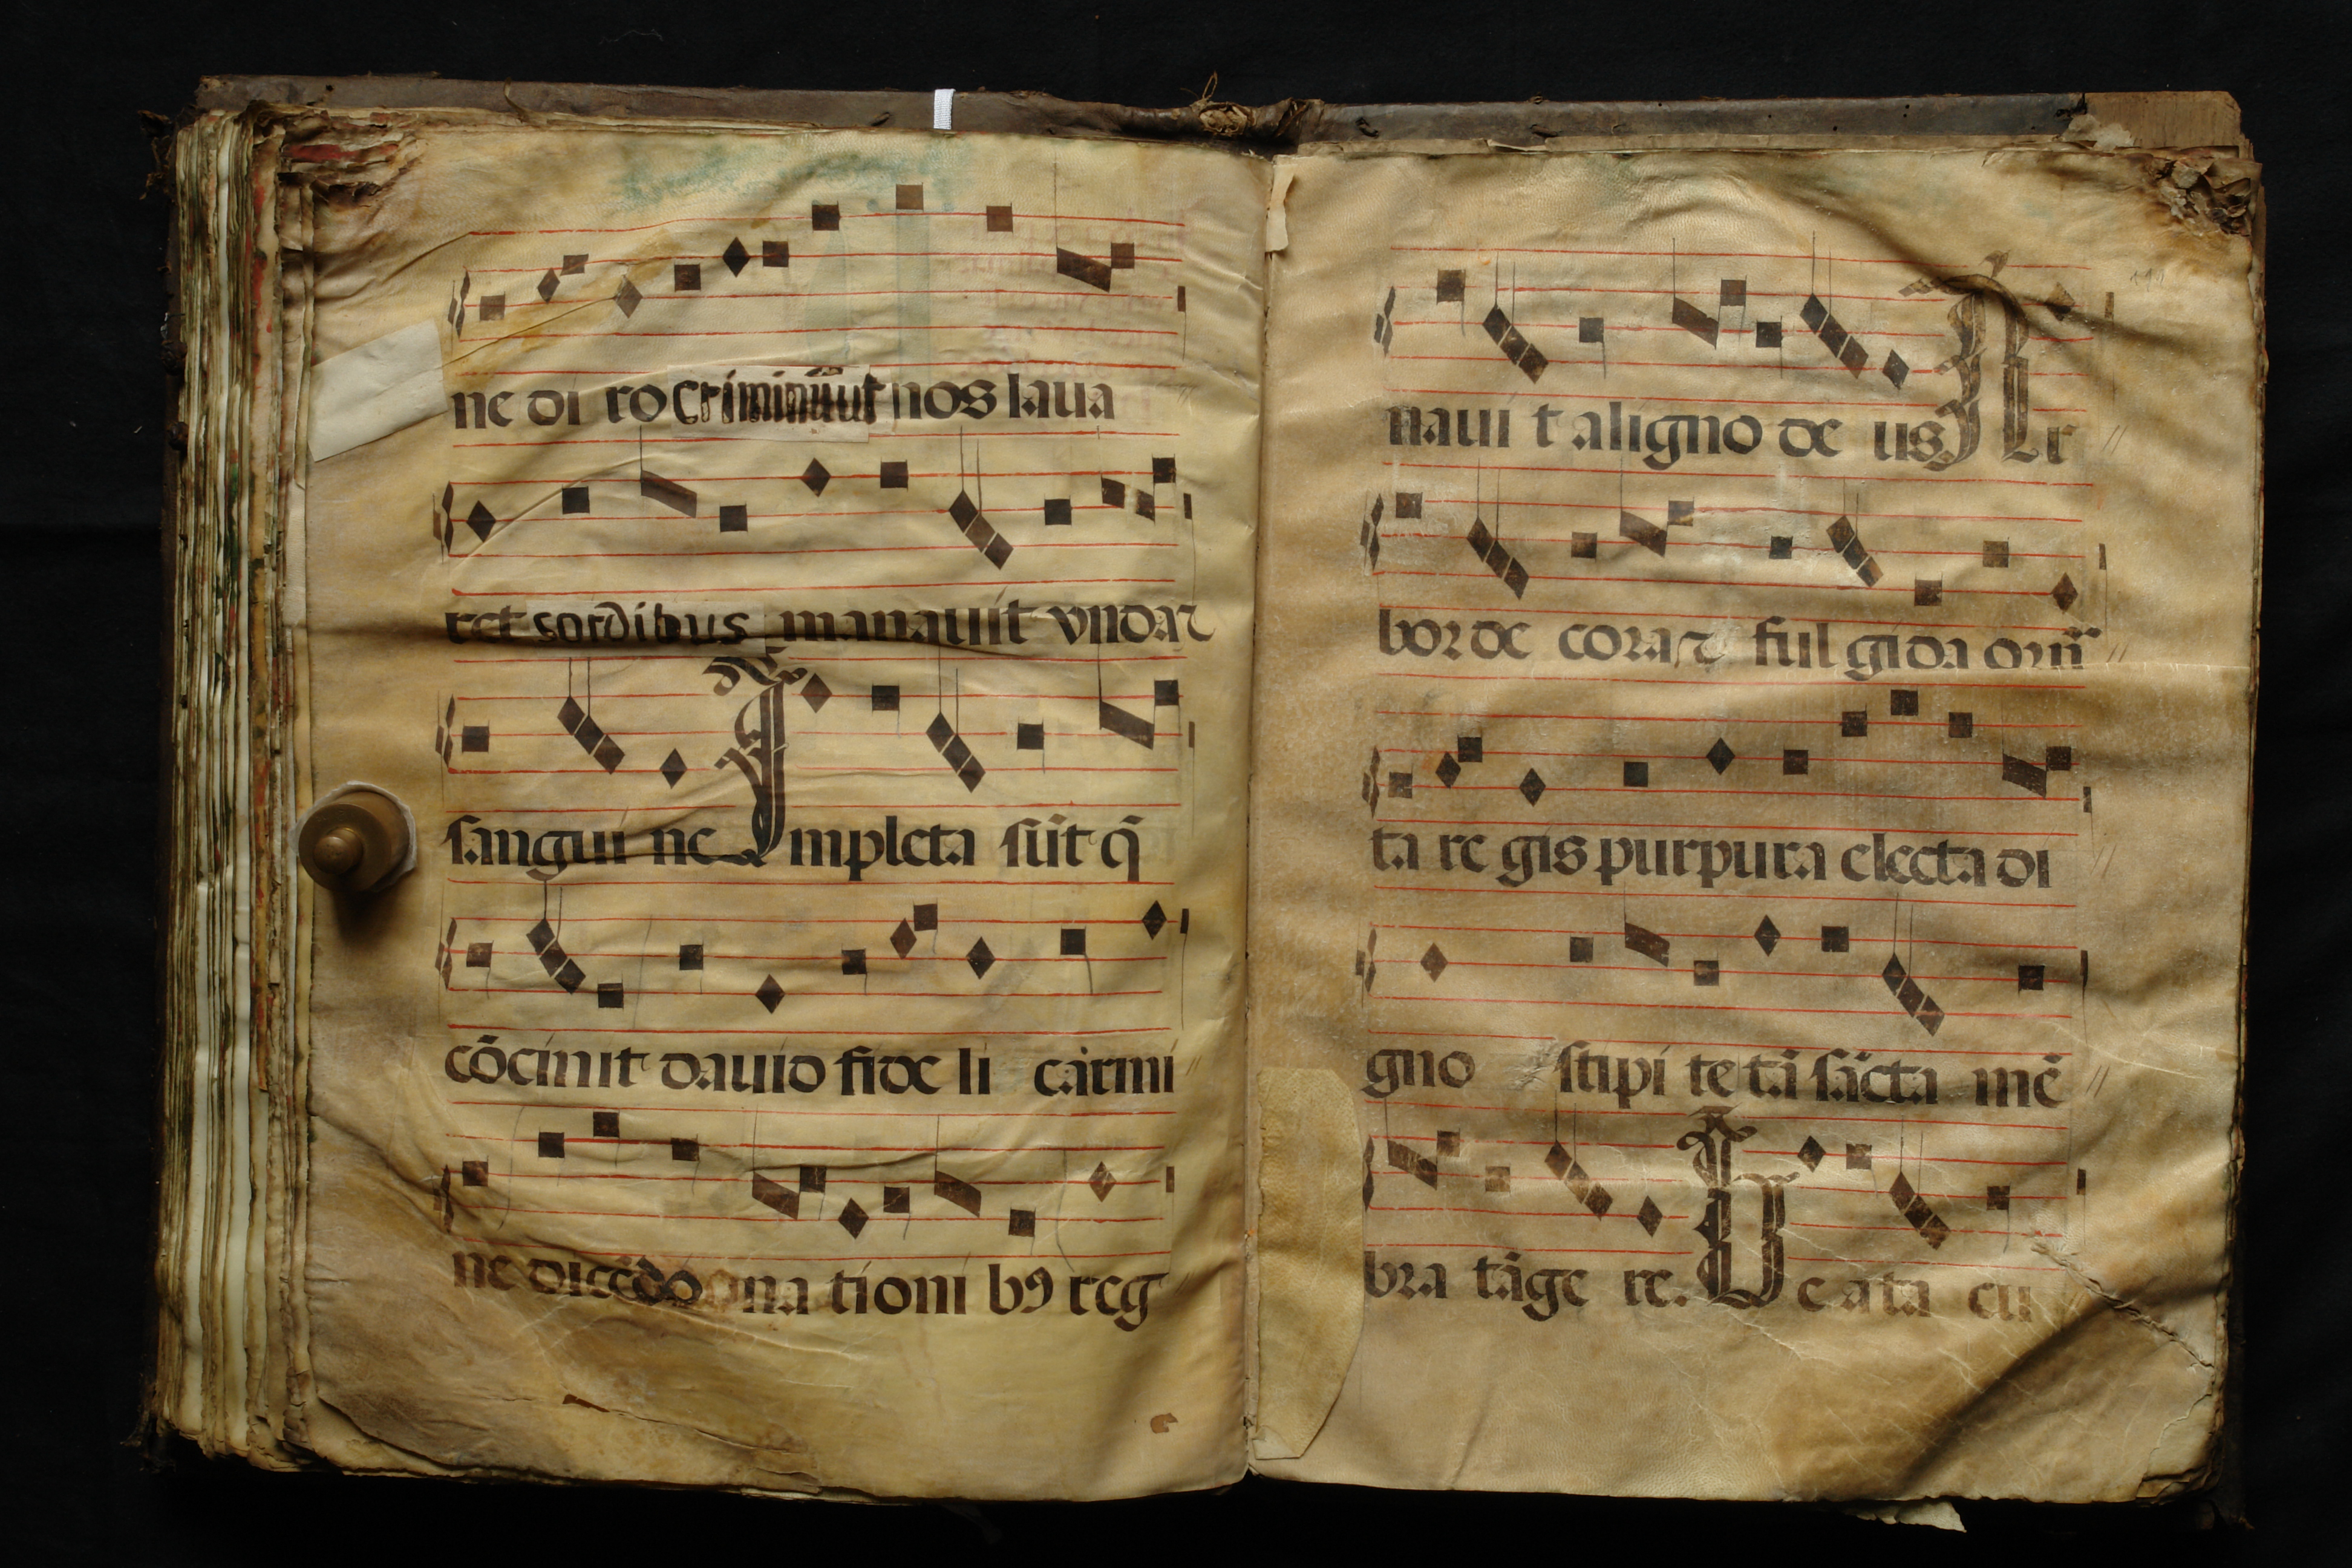 ne di ro criminū ut nos laua
ret sordibus manauit vndaꝛ
sangui ne Impleta sūt q̄
cōcinit dauid fide li carmi
ne dicēdo na tioni bꝰ reg
naui t aligno de us Ar
bor de cora ꝛ fulgida orn̄
ta re gis purpura electa di
gno stipi te tā sācta mē
bra tāge re. Be ata cu